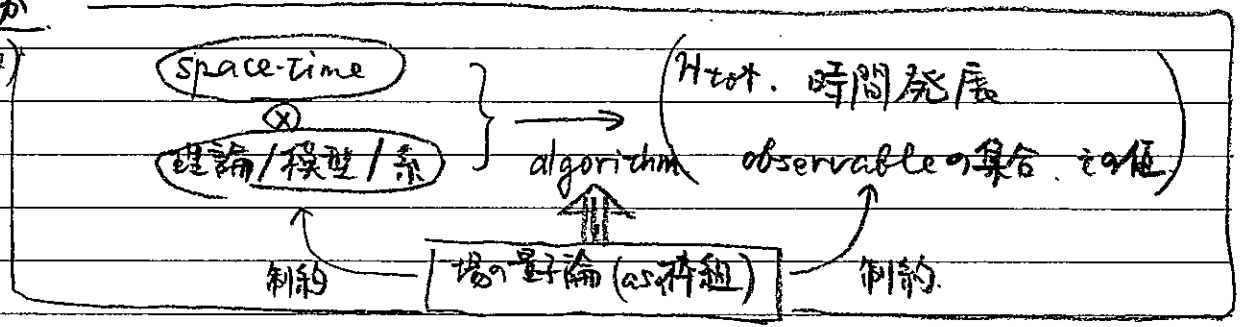 か
space-time
⊗
理論/模型/系
algorithm
H_tot. 時間発展
observableの集合、その値
制約
場の量子論 (as 枠組)
制約.